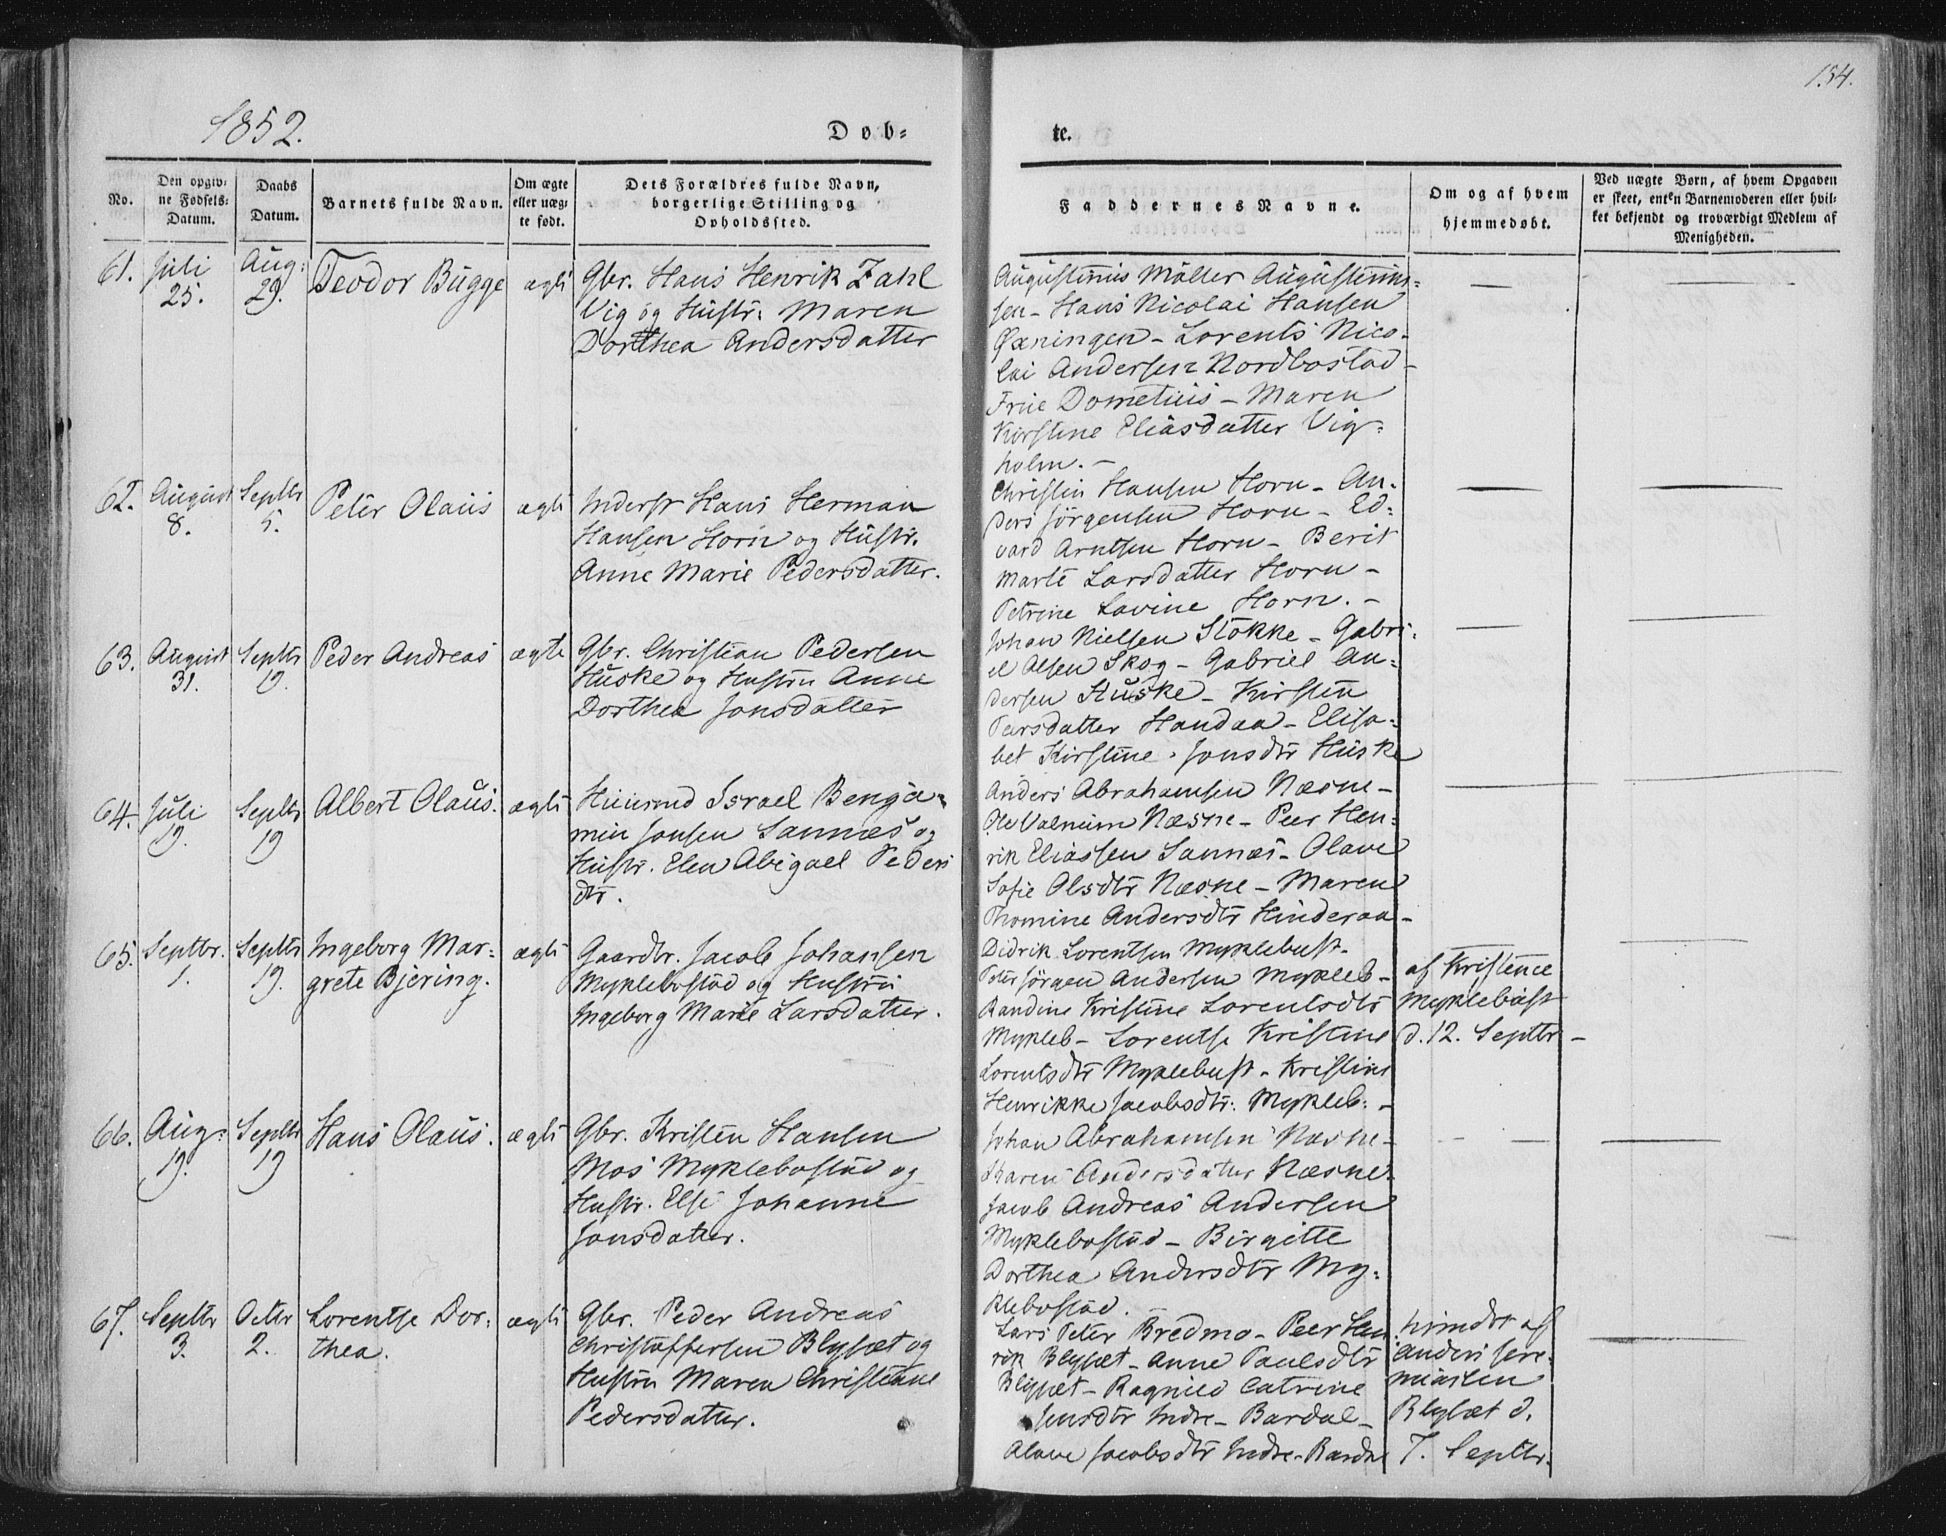 1852.
Døb-
te.
154.
No.
Den opgiv-
ne Fødsels-
Datum.
Daabs
Datum.
Barnets fulde Navn.
Om ægte
eller uæg-
te født.
Dets Forældres fulde Navn,
borgerlige Stilling og
Opholdssted.
Faddernes Navne.
Om og af hvem
hjemmedøbt.
Ved uægte Børn, af hvem Opgaven
er skeet, enten Barnemoderen eller hvil-
ket bekjendt og troværdigt Medlem af
Menigheden.
61. Juli 25. Aug: 29. Teodor Bugge ægte Gbr. Hans Henrik Zahl
Vig og Hustr. Maren
Dorthea Andersdatter
Augustinus Möller Augustinus-
sen - Hans Nicolai Hansen
Øxningen - Lorents Nico-
lai Andersen Nordbostad -
Frue Dometius - Maren
Kirstine Eliasdatter Vig-
holm. -
62. August 8. Septbr 5. Peter Olaus ægte Inderst Hans Herman
Hansen Horn og Hustr.
Anne Marie Pedersdatter.
Christen Hansen Horn - An-
ders Jörgensen Horn - Ed-
vard Arntsen Horn - Berit
Marte Larsdatter Horn -
Petrine Lovine Horn. -
63. August 31. Septbr 19. Peder Andreas ægte Gbr. Christian Pedersen
Huske og Hustru Anne
Dorthea Jonsdatter
Johan Nielsen Stokke - Gabri-
el Olsen Skog - Gabriel An-
dersen Huske - Kirsten
Pedersdatter Handaa - Elisa-
bet Kirstine Jonsdtr Huske
64. Juli 19. Septbr 19 Albert Olaus. ægte Huusmd Israel Benja-
min Jonsen Sannæs og
Hustr. Elen Abigael Peders
dtr.
Anders Abrahamsen Næsne -
Ole Valnum Næsne - Peer Hen-
rik Eliassen Sannæs - Olave
Sofie Olsdtr Næsne - Maren
Thomine Andersdtr Hinderaa -
65. Septbr. 1. Septbr 19. Ingeborg Mar-
grete Bjering. ægte Gaardbr. Jacob Johansen
Myklebostad og Hustru
Ingeborg Marie Larsdatter.
Didrik Lorentsen Myklebust -
Peter Jörgen Andersen Mykleb -
Randine Kristine Lorentsdtr
Mykleb - Lorentse Kristine
Lorentsdtr Myklebust - Kristine
Henrikke Jacobsdtr: Mykleb: -
af Kristence
Myklebust
d. 12. Septbr -
66. Aug: 19. Septbr 19 Hans Olaus. ægte Gbr. Kristen Hansen
Mos Myklebostad og
Hustr. Else Johanne
Jonsdatter.
Johan Abrahamsen Næsne -
Karen Andersdatter Næsne -
Jacob Andreas Andersen
Myklebostad - Birgitte
Dorthea Andersdtr My-
klebostad.
67. Septbr 3. Octbr 2. Lorentse Dor-
thea. ægte Gbr. Peder Andreas
Christoffersen Blysæt og
Hustru Maren Christiane
Pedersdatter.
Lars Peter Bredmo - Peer Hen
rik Blysæt - Anne Paulsdtr
Blysæt - Ragnild Catrine
Jensdtr Indre - Bardal -
Olave Jacobsdtr Indre - Bardal
hjmdbt af
Anders Jere-
miassen
Blysæt d.
7. Septbr.